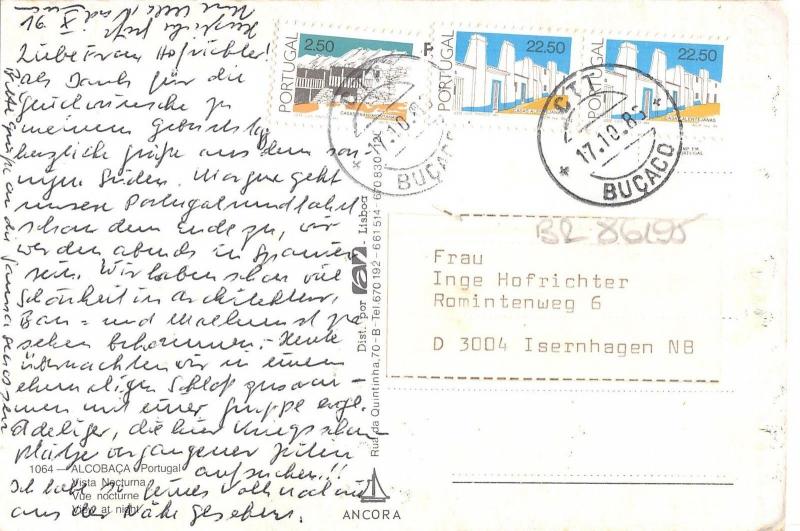 Liebe Frau Hofrichter!
als Dank für die
Glückwünsche zu
meinem Geburtstag
herzliche Grüße aus dem son-
nigen Süden. Morgen geht
unsere Portugalrundfahrt
schon dem Ende zu, wir
werden abends in Spanien
sein. Wir haben schon viel
Schönheit in Architektur,
Bau- und Malkunst zu
sehen bekommen. Heute
übernachten wir in einem
ehemaligen Schloß zusam-
men mit einer Gruppe engl.
Adeliger, die hier
Plätze vergangener Zeiten
aufsuchen!!
Ich habe so
aus der Nähe gesehen.
Bitte Grüße an die
1064 — ALCOBAÇA - Portugal
Vista Nocturna
Vue nocturne
View at night
Dist. por Lisboa
Rua da Quintinha, 70 - B - Tel. 670 192 - 661 514 - 670 830
ANCORA
PORTUGAL 2.50
PORTUGAL 22.50
PORTUGAL 22.50
CTT
17.10.85
BUÇACO
CTT
17.10.85
BUÇACO
BR 86/95
Frau
Inge Hofrichter
Romintenweg 6
D 3004 Isernhagen NB